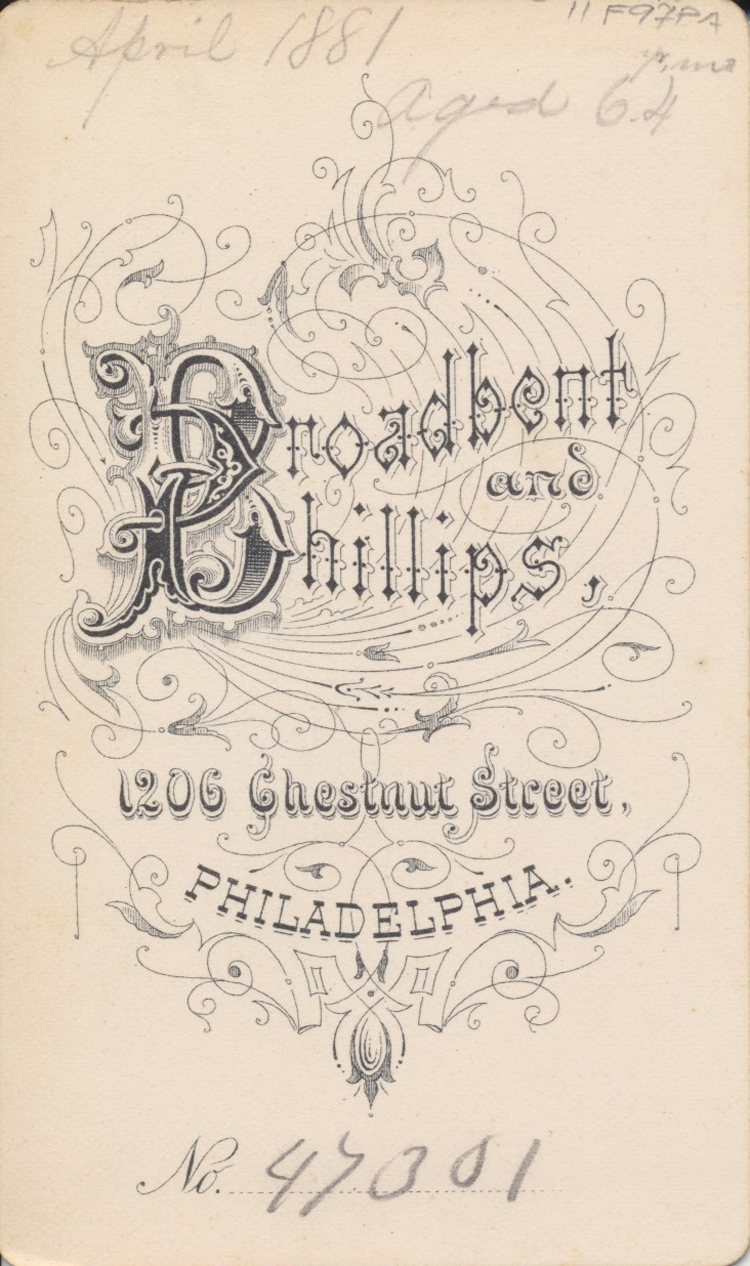 April 1881
11 F97PA
yr, mo
aged 64
Broadbent
and
Phillips,
1206 Chestnut Street,
PHILADELPHIA.
No. 47301